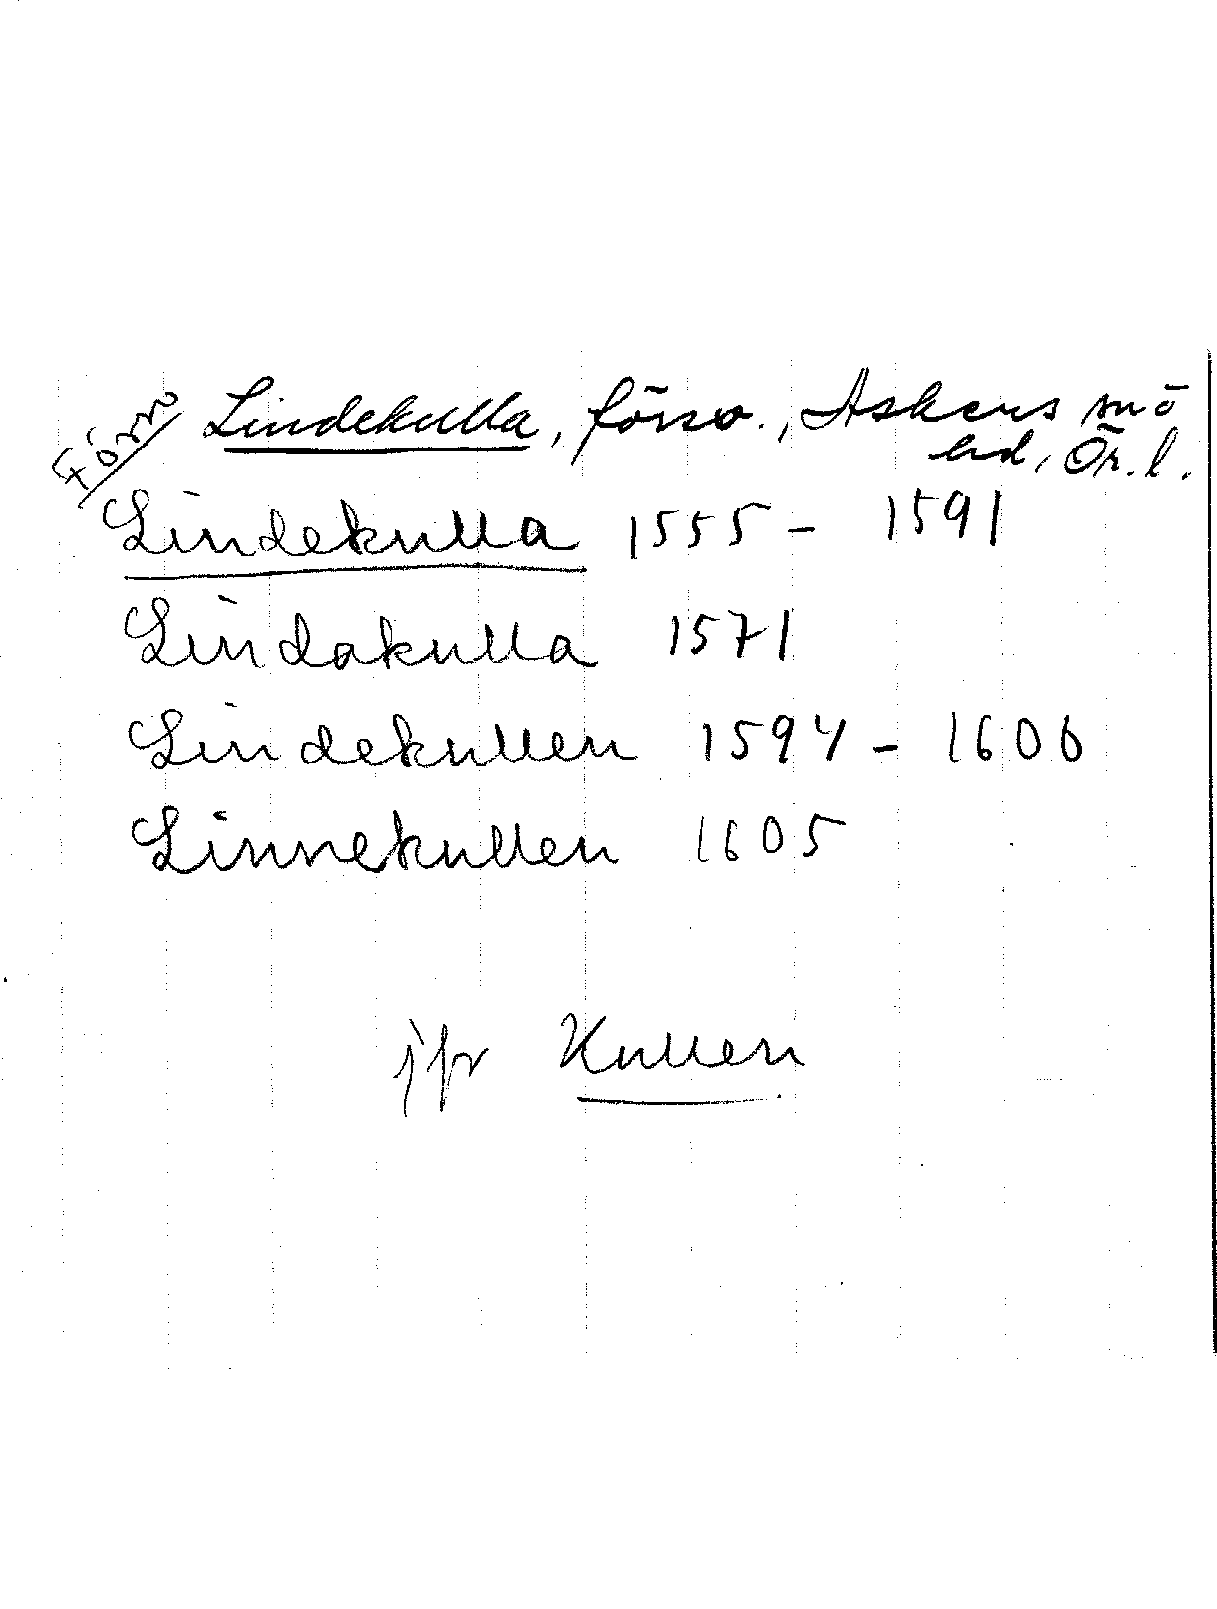 Förn
Lindekulla, försv., Askers snö
hd, Ör. l.
Lindekulla 1555 - 1591
Lindakulla 1571
Lindekullen 1594 - 1606
Linnekullen 1605
jfr Kullen